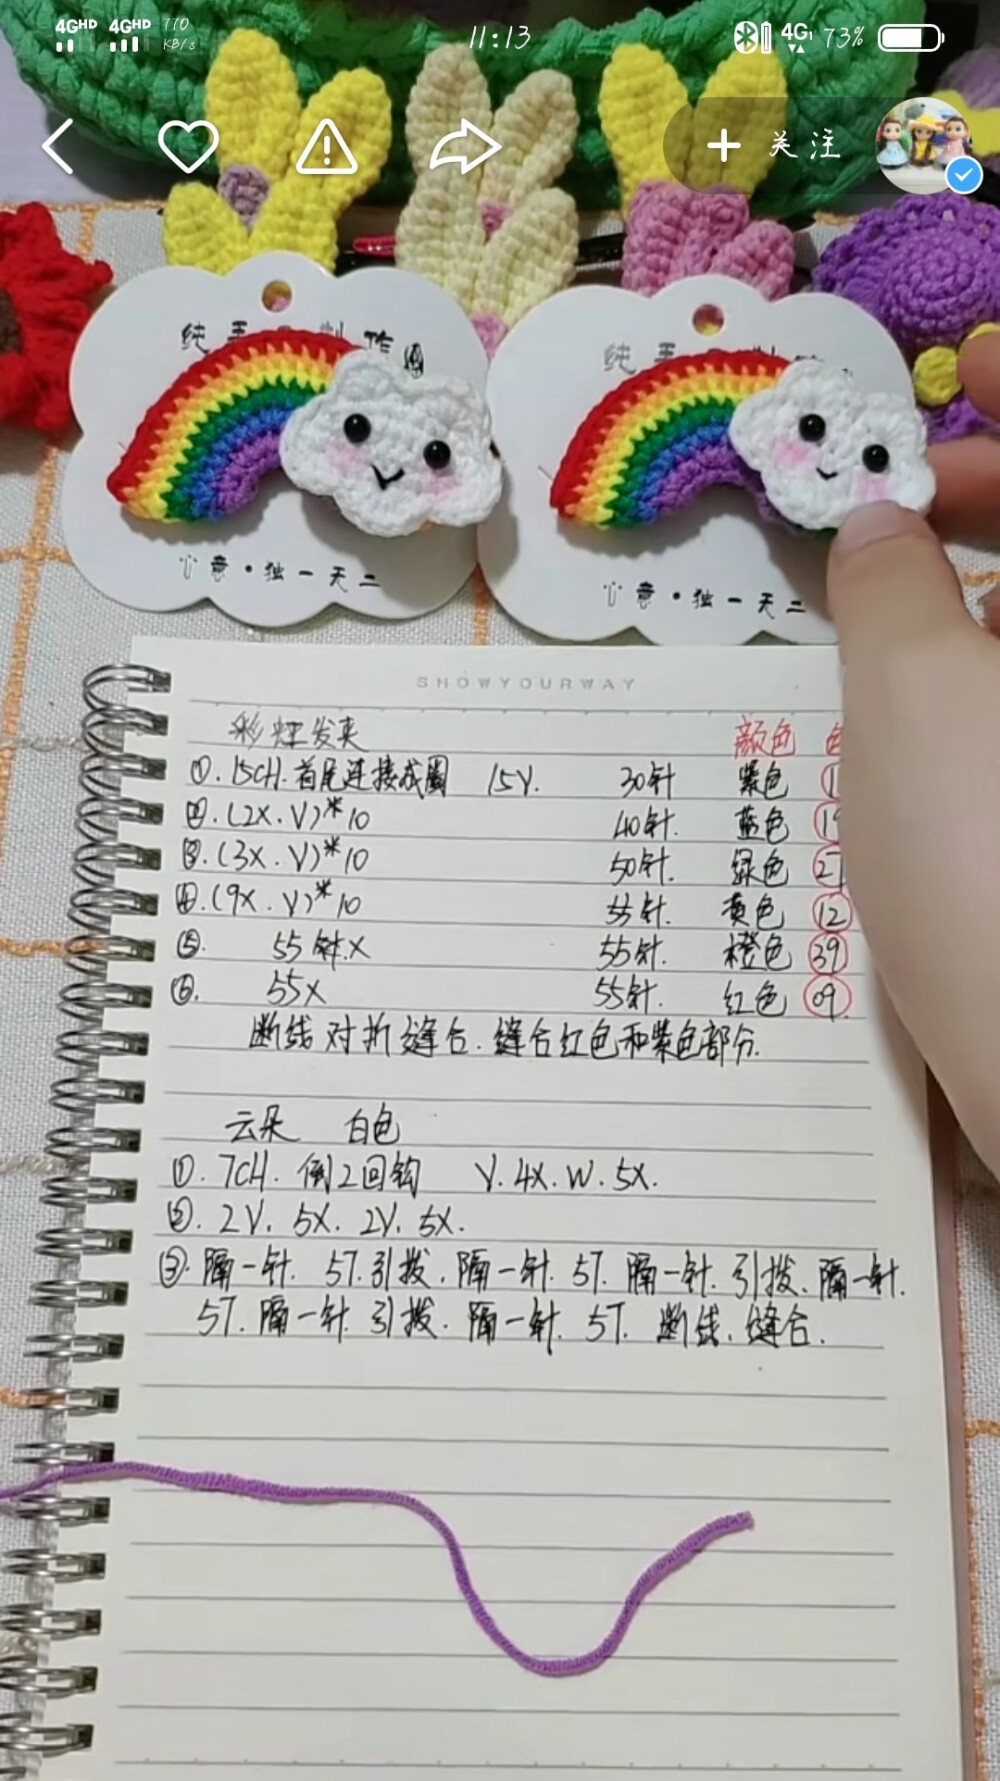 4GHD 4GHD 770 KB/s 11:13 4G 73%
关注
纯手 制作
纯手 制
心意·独一无二
心意·独一无二
SHOWYOURWAY
彩虹发夹 颜色 色
①.15CH.首尾连接成圈 15V. 30针 紫色
②.(2X.V)*10 40针. 蓝色
③.(3X.V)*10 50针. 绿色
④.(9X.V)*10 55针. 黄色 12
⑤. 55针.X 55针. 橙色 39
⑥. 55X 55针. 红色 09
断线对折缝合.缝合红色和紫色部分.
云朵 白色
①.7CH.倒2回钩 V.4X.W.5X.
②.2V.5X.2V.5X.
③.隔一针.5T.引拨.隔一针.5T.隔一针.引拨.隔一针.
5T.隔一针.引拨.隔一针.5T.断线.缝合.